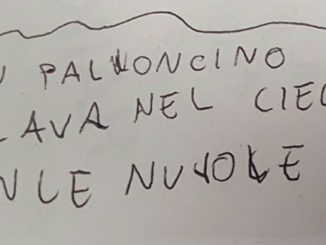 PALLONCINO
LAVA NEL CIEL
N LE NUVOLE